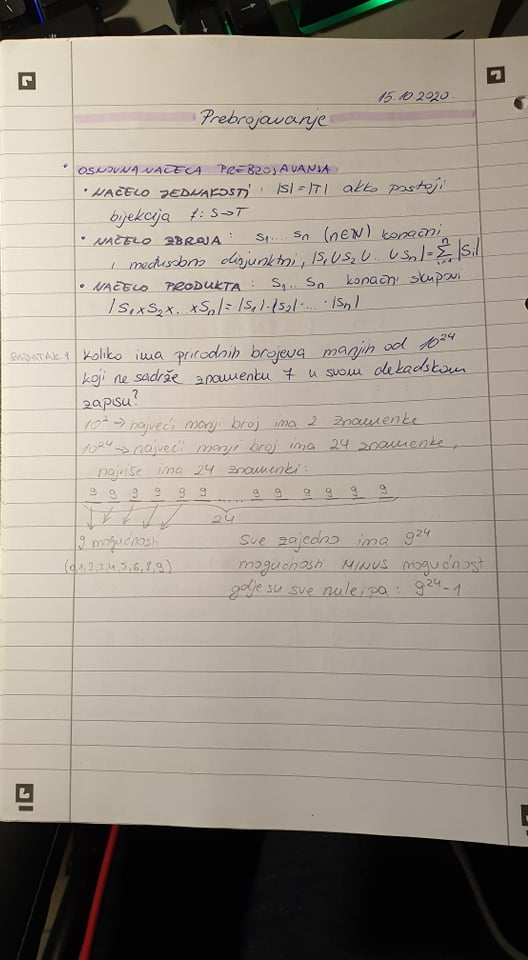 15.10.2020.
Prebrojavanje
• OSNOVNA NAČELA PREBROJAVANJA
• NAČELO JEDNAKOSTI: |S|=|T| akko postoji
bijekcija f: S→T
• NAČELO ZBROJA: S₁...Sₙ (n∈N) konačni
i međusobno disjunktni, |S₁∪S₂∪...∪Sₙ|=∑ⁿᵢ₌₁|Sᵢ|
• NAČELO PRODUKTA: S₁...Sₙ konačni skupovi
|S₁×S₂×...×Sₙ|=|S₁|·|S₂|·...·|Sₙ|
ZADATAK 1 Koliko ima prirodnih brojeva manjih od 10²⁴
koji ne sadrže znamenku 7 u svom dekadskom
zapisu?
10² → najveći manji broj ima 2 znamenke
10²⁴ → najveći manji broj ima 24 znamenke,
najviše ima 24 znamenki:
9 9 9 9 9 9 ..... 9 9 9 9 9 9
24
9 mogućnosti
(0,1,2,3,4,5,6,8,9)
Sve zajedno ima 9²⁴
mogućnosti MINUS mogućnost
gdje su sve nule, pa: 9²⁴-1